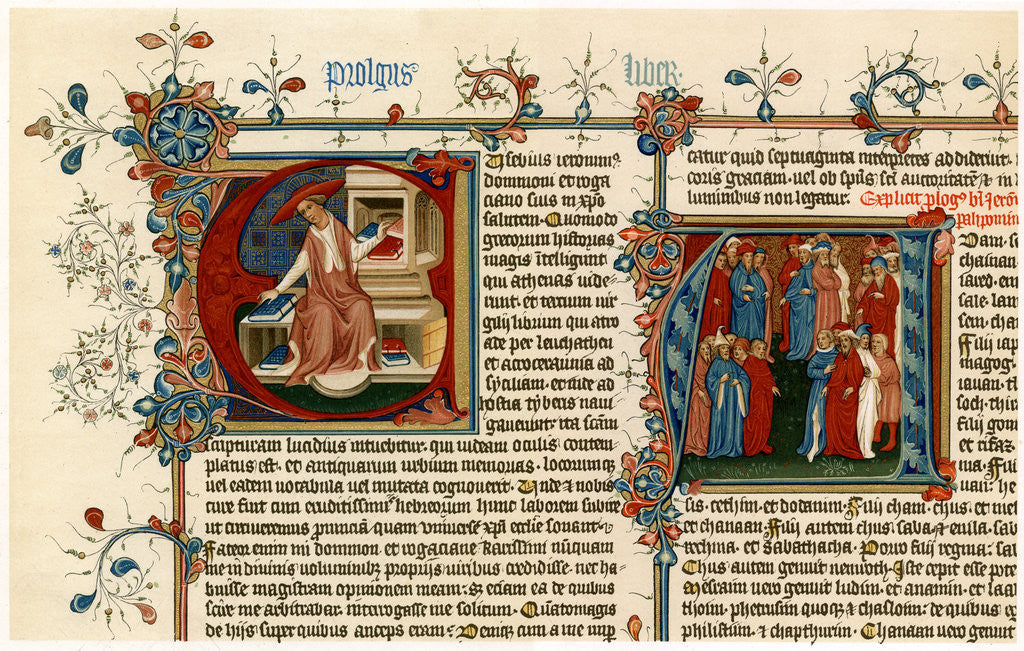 Prologus
liber.
Eusebius ieronim9
domnioni et roga
ciano suis in xpo
salutem. Quomodo
grecorum historias
magis intelligunt
qui athenas uide-
runt. et tercium uir
gilij librum qui a troa
de per leuchaten
et acroceraunia ad
syciliam. et inde ad
hostia tyberis naui
gauerint. ita scam
scripturam lucidius intuebitur. qui iudeam oculis contem
platus est. et antiquarum urbium memorias. locorumque
uel eadem uocabula uel mutata cognouerit. Unde et nobis
cure fuit cum eruditissimis hebreorum hunc laborem subire
ut circuiremus prouinciam quam uniuerse xpi ecclie sonant.
Fateor enim mi domnion et rogaciane karissimi nunquam
me in diuinis uoluminibz propriis uiribus credidisse. nec ha-
buisse magistram opinionem meam. Sz eciam ea de quibus
scire me arbitrabar. interogasse me solitum. Quantomagis
de hijs super quibus anceps eram. Deniqz cum a me nup
catur quid septuaginta interpretes addiderint.
coris graciam. uel ob spus sci auctoritatem
luminibus non legatur. Explicit plog9 bi Jeron
palipomin
Adam se
chainan
iared. en
sale. lam
sem. cha
Filij iap
magog.
iauan. th
soch. thir
filij gom
et rifaz.
ma. Filij
iuan. he
sis. cethim. et dodanim. Filij cham. chus. et mes
et chanaan. Filij autem chus. saba. et euila. sab
techma. et sabathacha. Porro filij regma. sab
Chus autem genuit nemroth. Iste cepit esse pote
Mesraim uero genuit ludim. et anamin. et laa
thoim. phetrusim quoqz et chasloim. de quibus e
philistium. et chapthurim. Chanaan uero genuit